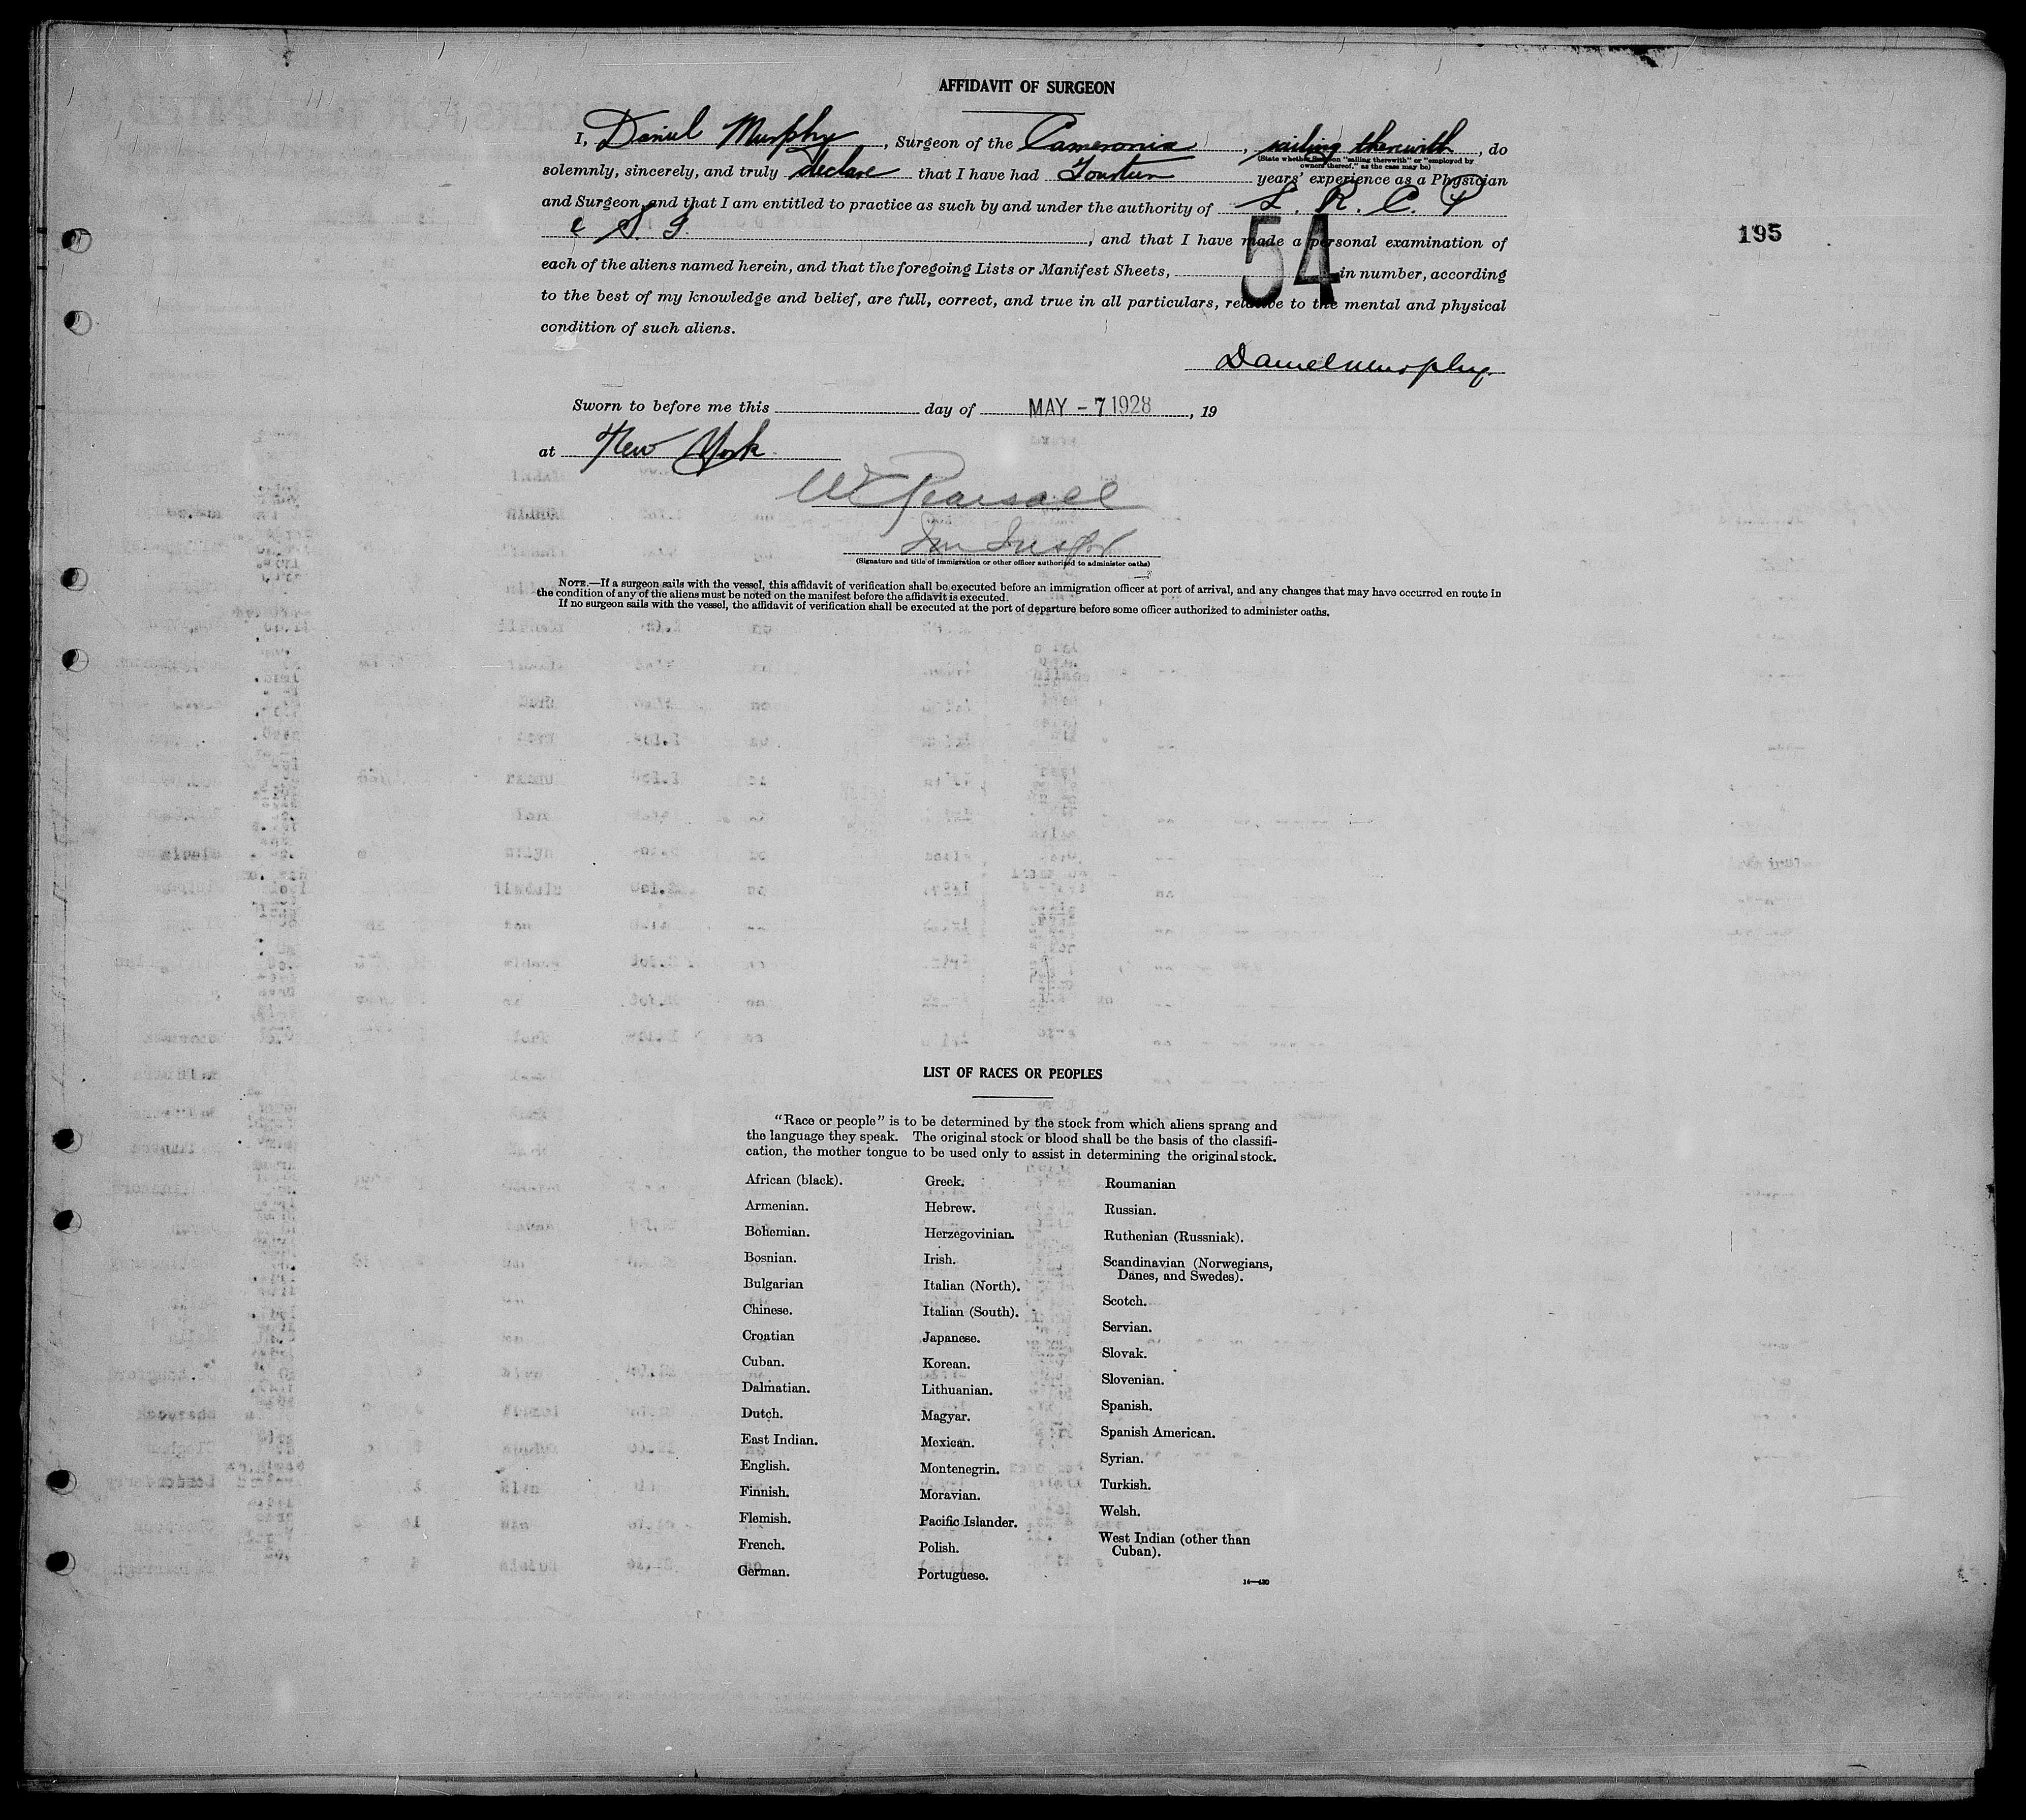 AFFIDAVIT OF SURGEON
I, Daniel Murphy, Surgeon of the Cameronia, sailing therewith, do
(State whether Surgeon "sailing therewith" or "employed by
owners thereof," as the case may be)
solemnly, sincerely, and truly declare that I have had Fourteen years' experience as a Physician
and Surgeon, and that I am entitled to practice as such by and under the authority of L. R. C. P
& S. I., and that I have made a personal examination of
195
each of the aliens named herein, and that the foregoing Lists or Manifest Sheets, 54 in number, according
to the best of my knowledge and belief, are full, correct, and true in all particulars, relative to the mental and physical
condition of such aliens.
Daniel Murphy.
Sworn to before me this day of MAY - 7 1928, 19
at New York.
W Pearsall
(Signature and title of immigration or other officer authorized to administer oaths)
NOTE.—If a surgeon sails with the vessel, this affidavit of verification shall be executed before an immigration officer at port of arrival, and any changes that may have occurred en route in
the condition of any of the aliens must be noted on the manifest before the affidavit is executed.
If no surgeon sails with the vessel, the affidavit of verification shall be executed at the port of departure before some officer authorized to administer oaths.
LIST OF RACES OR PEOPLES
"Race or people" is to be determined by the stock from which aliens sprang and
the language they speak. The original stock or blood shall be the basis of the classifi-
cation, the mother tongue to be used only to assist in determining the original stock.
African (black).
Armenian.
Bohemian.
Bosnian.
Bulgarian
Chinese.
Croatian
Cuban.
Dalmatian.
Dutch.
East Indian.
English.
Finnish.
Flemish.
French.
German.
Greek.
Hebrew.
Herzegovinian.
Irish.
Italian (North).
Italian (South).
Japanese.
Korean.
Lithuanian.
Magyar.
Mexican.
Montenegrin.
Moravian.
Pacific Islander.
Polish.
Portuguese.
Roumanian
Russian.
Ruthenian (Russniak).
Scandinavian (Norwegians,
Danes, and Swedes).
Scotch.
Servian.
Slovak.
Slovenian.
Spanish.
Spanish American.
Syrian.
Turkish.
Welsh.
West Indian (other than
Cuban).
14—430